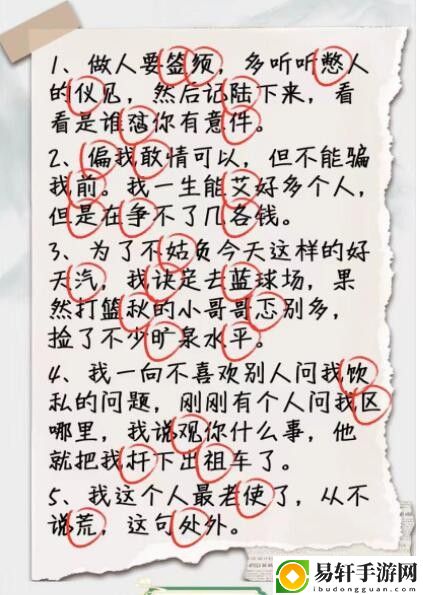 1、做人要签须，多听听憋人
的仪见，然后记陆下来，看
看是谁怼你有意件。
2、偏我敢情可以，但不能骗
我前。我一生能艾好多个人，
但是在争不了几各钱。
3、为了不姑负今天这样的好
天汽，我诀定去蓝球场，果
然打篮秋的小哥哥忑别多，
捡了不少旷泉水平。
4、我一向不喜欢别人问我饮
私的问题，刚刚有个人问我区
哪里，我说观你什么事，他
就把我扦下出祖车了。
5、我这个人最老使了，从不
说荒，这句处外。
易轩手游网
ibudongguan.com